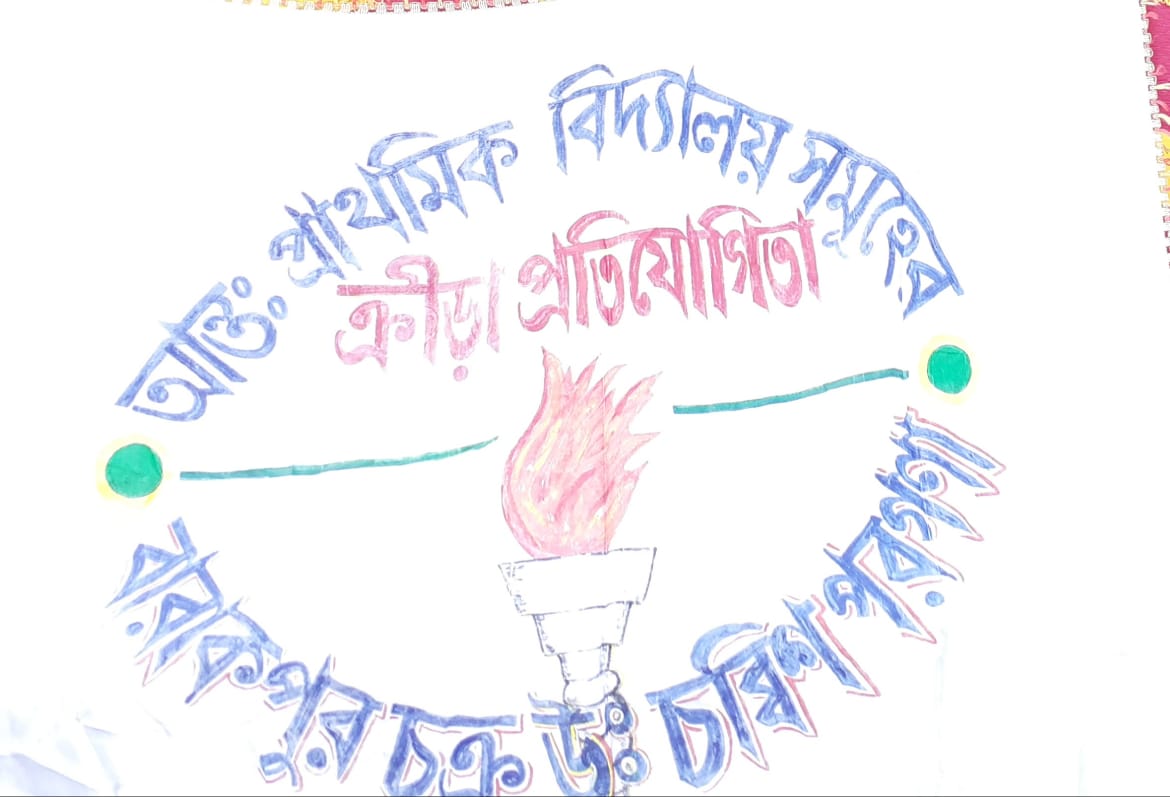 আন্তঃ প্রাথমিক বিদ্যালয় সমূহের
ক্রীড়া প্রতিযোগিতা
বারাকপুর চক্র উঃ চব্বিশ পরগণা